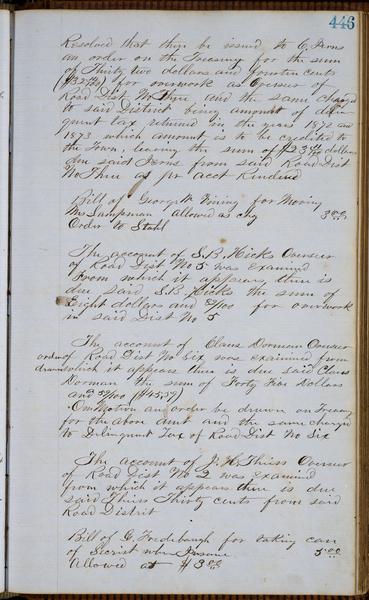 446
Resolved that there be issued to C. Irons
an order on the Treasury for the sum
of Thirty two dollars and fourteen cents
($32 14/100) for overwork as Overseer of
Road Dist No Three and the same charged
to said District being amount of delin
quent tax returned in the years 1872 and
1873 which amount is to be credited to
the Town, leaving the sum of dollars
due said Irons from said Road Dist
No Three as per acct Rendered
Bill of George W Vining for Moving
Mrs Sampman allowed as chg 3.00
Order to Stahl
The account of S. B. Hicks Overseer
of Road Dist No 5 was Examined
From which it appears there is
due said S. B. Hicks the sum of
Eight dollars and /100 for overwork
in said Dist No 5
The account of Claus Dorman Overseer
order of Road Dist No Six was examined from
drawn which it appears there is due said Claus
Dorman the sum of Forty Five Dollars
and 59/100 ($45.59)
On Motion an order be drawn on Treasury
for the above amt and the same charged
to Delinquent Tax of Road Dist No Six
The account of J. H. Thiess Overseer
of Road Dist No 2 was Examined
from which it appears there is due
said Thiess Thirty cents from said
Road District
Bill of G. Fredebaugh for taking care
of Secrist when Insane 5.00
Allowed at $3.00